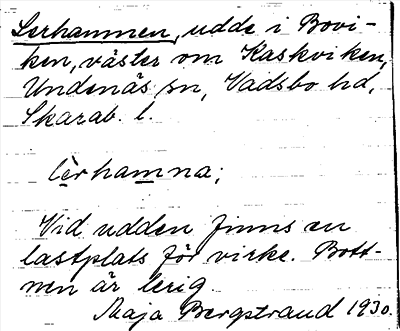 Lerhamnen, udde i Bovi-
ken, väster om Kaskviken,
Undenäs sn, Vadsbo hd,
Skarab. l.
lèrhamna;
Vid udden finns en
lastplats för virke. Bott-
nen är lerig.
Maja Bergstrand 1930.